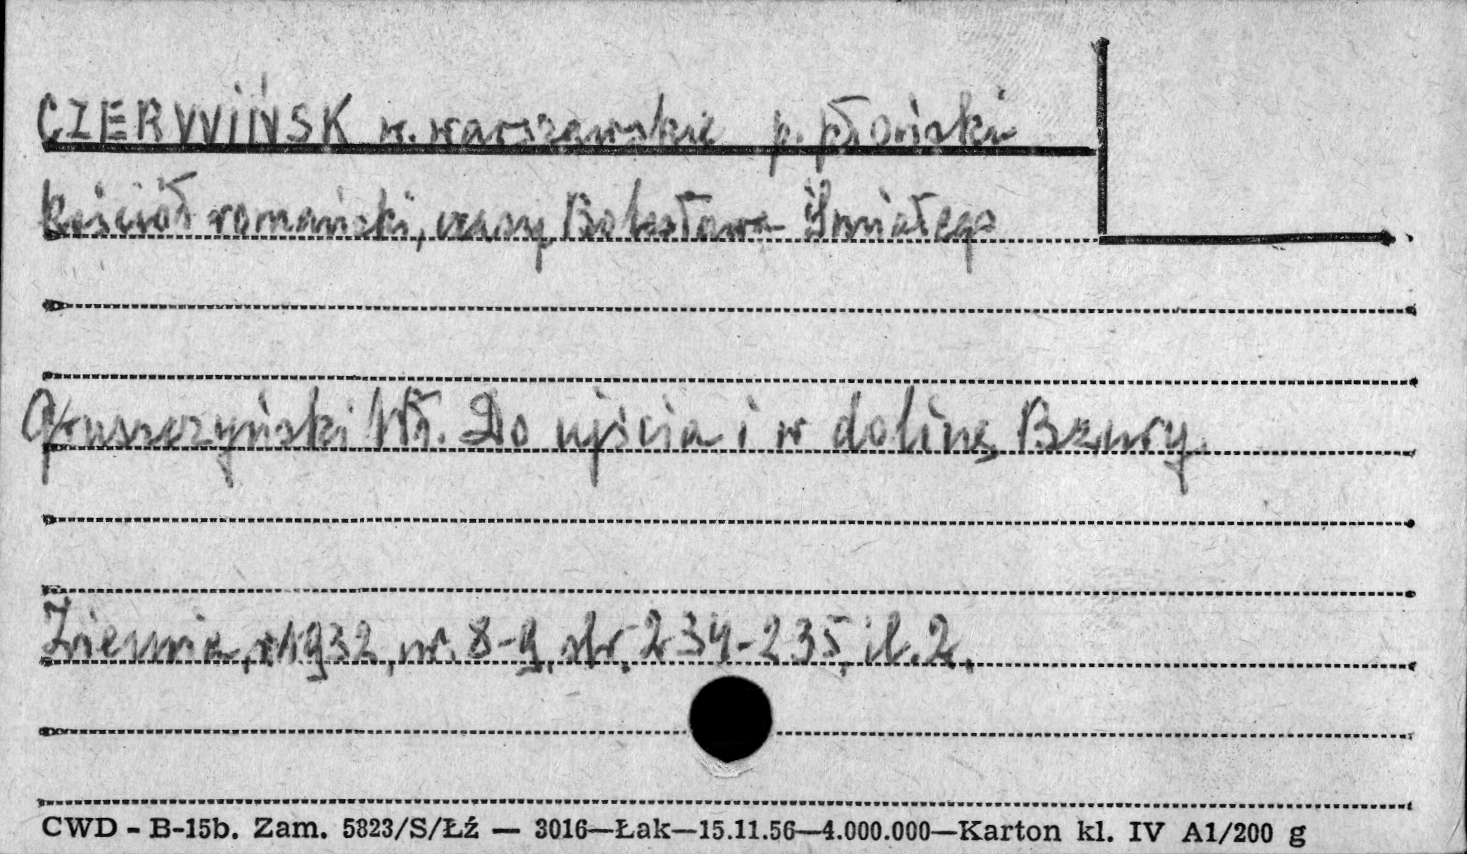 CZERWIŃSK w. warszawskie p. płoński
kościół romański, czasy Bolesława Śmiałego
Wł. Do ujścia i w dolinę Bzury.
Ziemia, r. 1932, nr. 8-9, str. 234-235, il. 2.
CWD - B-15b. Zam. 5823/S/Łź — 3016—Łak—15.11.56—4.000.000—Karton kl. IV A1/200 g